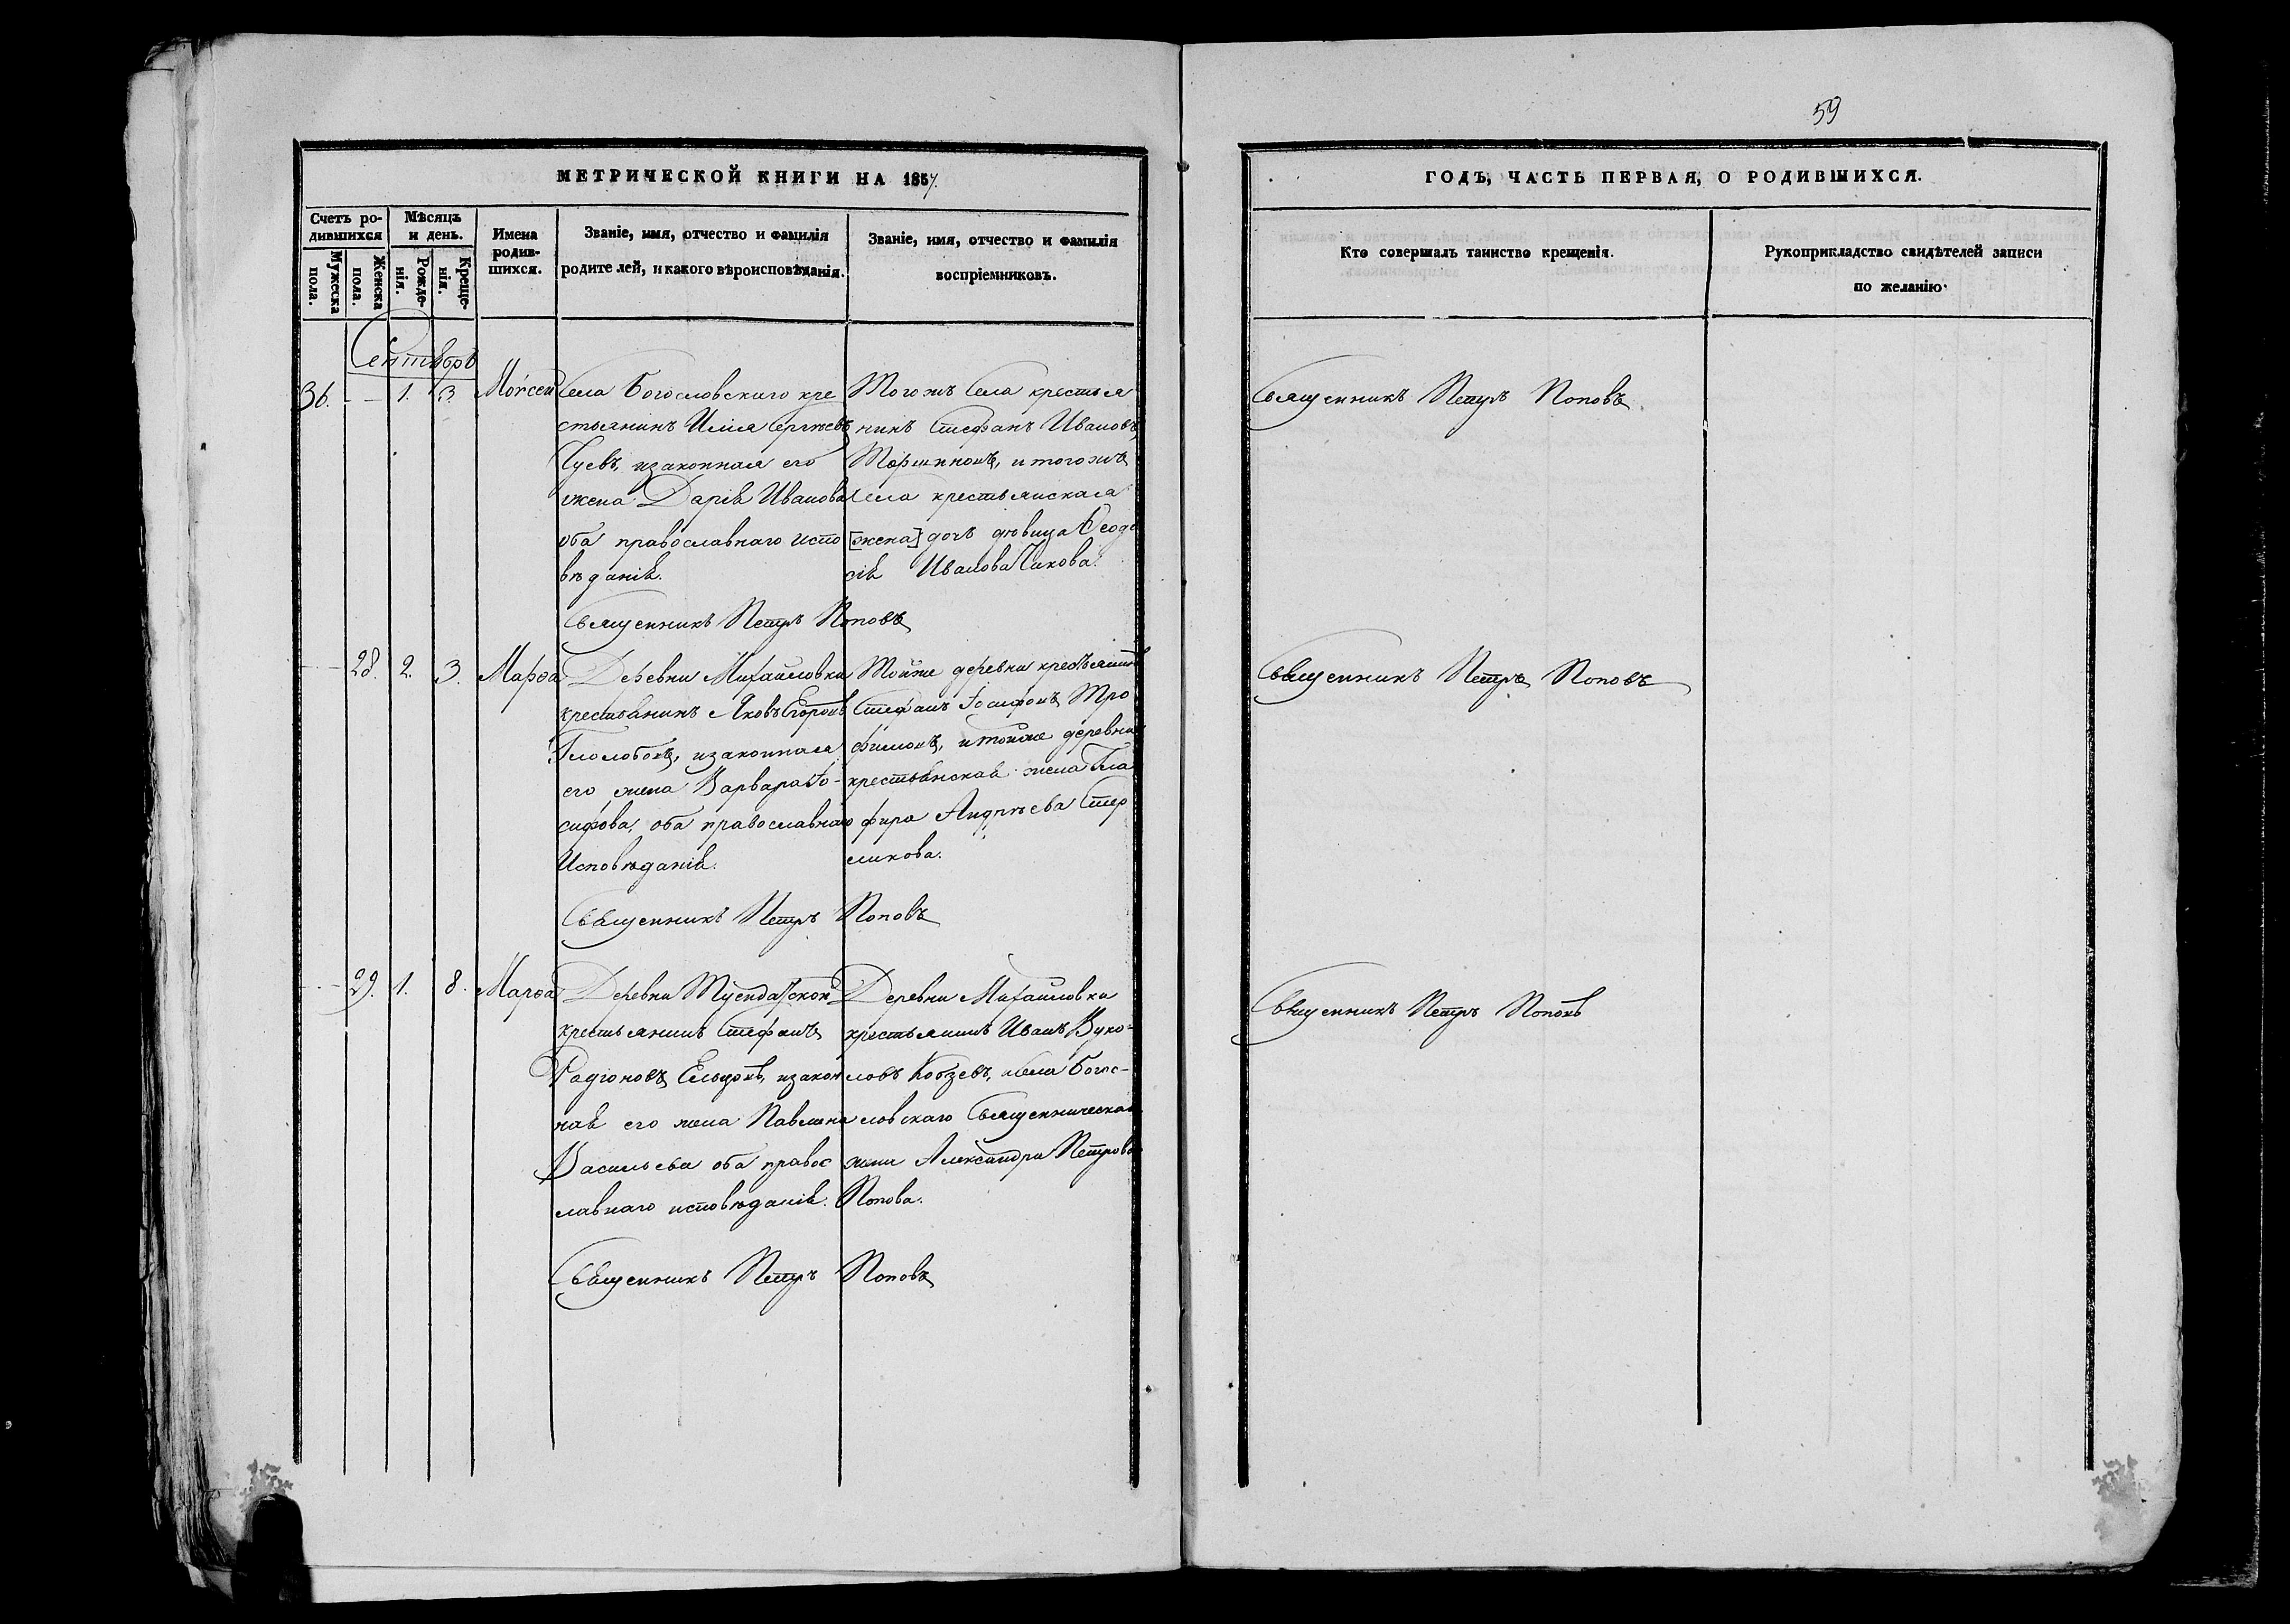 59
МЕТРИЧЕСКОЙ КНИГИ НА 1857.
Счетъ ро-
дившихся
Мужеска
пола.
Женска
пола.
Мѣсяцъ
и день.
Рожде-
нія.
Креще-
нія.
Имена
родив-
шихся.
Званіе, имя, отчество и фамилія
родителей, и какого вѣроисповѣданія.
Званіе, имя, отчество и фамилія
воспріемниковъ.
Сентябрь
36. 1. 3. Моѵсей
Села Богословскаго кре
стьянинъ Илія Сергѣевъ
изаконная его
жена Дарія Иванова
оба православнаго испо
вѣданія.
Тогожъ Села крестья
нинъ Стефанъ Ивановъ
и тогожъ
Села крестьянская
[жена] дочъ дѣвица Ѳеодо
сія Иванова Чикова.
Священникъ Петръ Поповъ
28. 2. 3. Марѳа
Деревни Михайловки
крестьянинъ Яковъ Егоровъ
Гололобовъ, изаконная
его жена Варвара Іо-
сифова, оба православнаго
Исповѣданія.
Тойже деревни крестьянинъ
Стефанъ Іосифовъ Тро
фимовъ, и тойже деревни
крестьянская жена Гла
фира Андрѣева Стер
ликова.
Священникъ Петръ Поповъ
29. 1. 8. Марѳа
Деревни Туендатской
крестьянинъ Стефанъ
Радіоновъ Ельцовъ, изакон
ная его жена Павлина
Васильева оба правос
лавнаго исповѣданія.
Деревни Михайловки
крестьянинъ Иванъ Вуко-
ловъ Кобзевъ, и села Богос-
ловскаго Священническая
жена Александра Петрова
Попова.
Священникъ Петръ Поповъ
ГОДЪ, ЧАСТЬ ПЕРВАЯ, О РОДИВШИХСЯ.
Кто совершалъ таинство крещенія.
Рукоприкладство свидѣтелей записи
по желанію.
Священникъ Петръ Поповъ
Священникъ Петръ Поповъ
Священникъ Петръ Поповъ